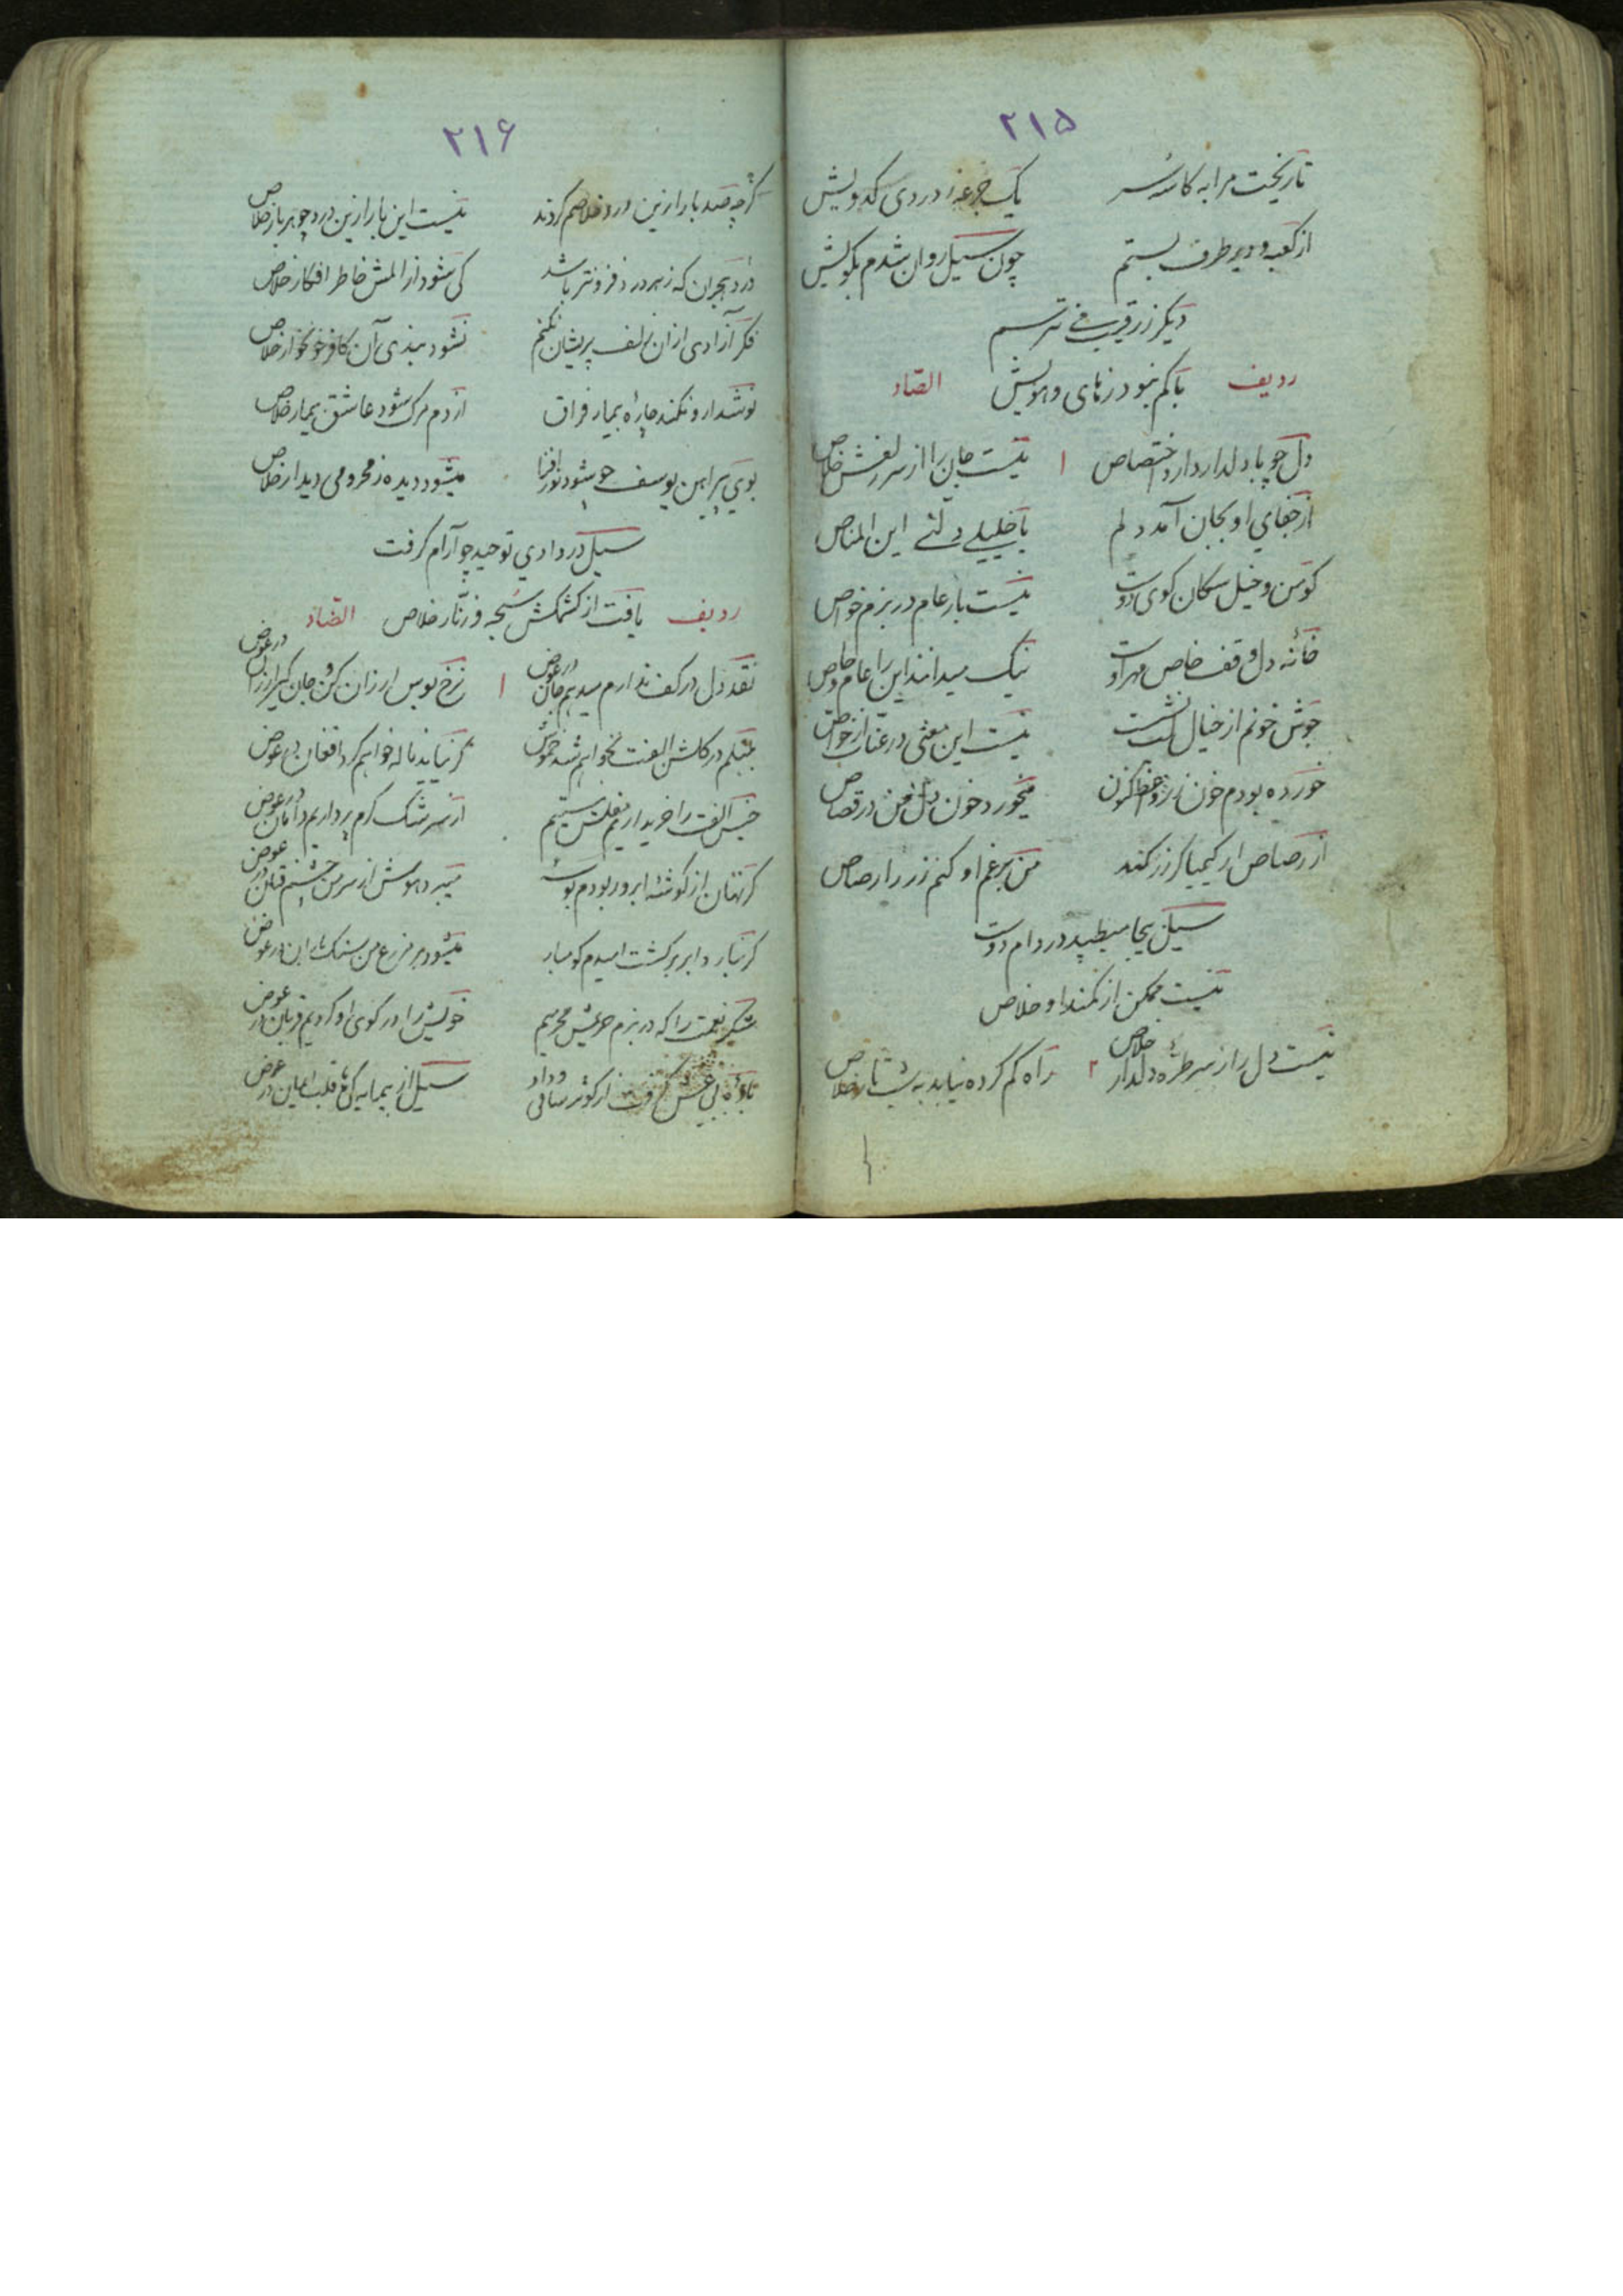 ۲۱۵
تا ریخت مرا به کاسهٔ سر یک جرعه ز دردی کدویش
از کعبه و دیر طرف بستم چون سیل روان شدم بکویش
دیگر ز رقیب نترسم
ردیف باکم نبود ز های و هویش الصّاد
دل چو با دلدار دارد اختصاص ۱ نیست جان را از سر زلفش خلاص
از جفای او بجان آمد دلم یا خلیلی دلنی این المناص
کو من و خیل سکان کوی دوست نیست بار عام در بزم خواص
خانه دل وقف خاص مهر اوست نیک میدانند این را عام و خاص
جوش خونم از خیال لب نشست نیست این معنی در عنّاب از خواص
خورده بودم خون رز اکنون میخورد خون دل من در قصاص
از رصاص ار کیمیاگر زر کند من برغم او کنم زر را رصاص
سیل بیجا میطپید در دام دوست
نیست ممکن از کمند او خلاص
نیست دل را ز سر طرّه دلدار خلاص ۲ راه گم کرده نیابد به شب تار خلاص
۲۱۶
گرچه صد بار ازین درد خلاصم کردند نیست این بار ازین درد چو هر بار خلاص
درد هجران که ز هر درد فزونتر باشد کی شود از المش خاطر افکار خلاص
فکر آزادی از ان زلف پریشان نکنم نشود بندی آن کافر خونخوار خلاص
نوشدارو نکند چاره بیمار فراق از دم مرگ شود عاشق بیمار خلاص
بوی پیراهن یوسف چو شود نور افزا میشود دیده ز محرومی دیدار خلاص
سیل در وادی توحید چو آرام گرفت
ردیف یافت از کشمکش سبحه و زنّار خلاص الضّاد
نقد دل در کف ندارم میدهم جان در عوض ۱ نرخ بوس ارزان کن و جان گیر ارزان در عوض
بلبلم در گلشن الفت نخواهم شد خموش گر نیاید ناله خواهم کرد افغان در عوض
جنس الفت را خریداریم مفلس نیستیم از سرشک گرم پر داریم دامان در عوض
گر نهان از گوشهٔ ابرو ربودم بوسهٔ میبرد هوش از سر من چشم فتان در عوض
گر نبارد ابر بر کشت امیدم گو مبار میشود بر مزرع من سنگ باران در عوض
شکر نعمت را که در بزم حریمش محرمیم خویش را در کوی او کردیم قربان در عوض
باده بی غش گرفت از کوثر ساقی وداد سیل از پیمانه کی قلب ایمان در عوض